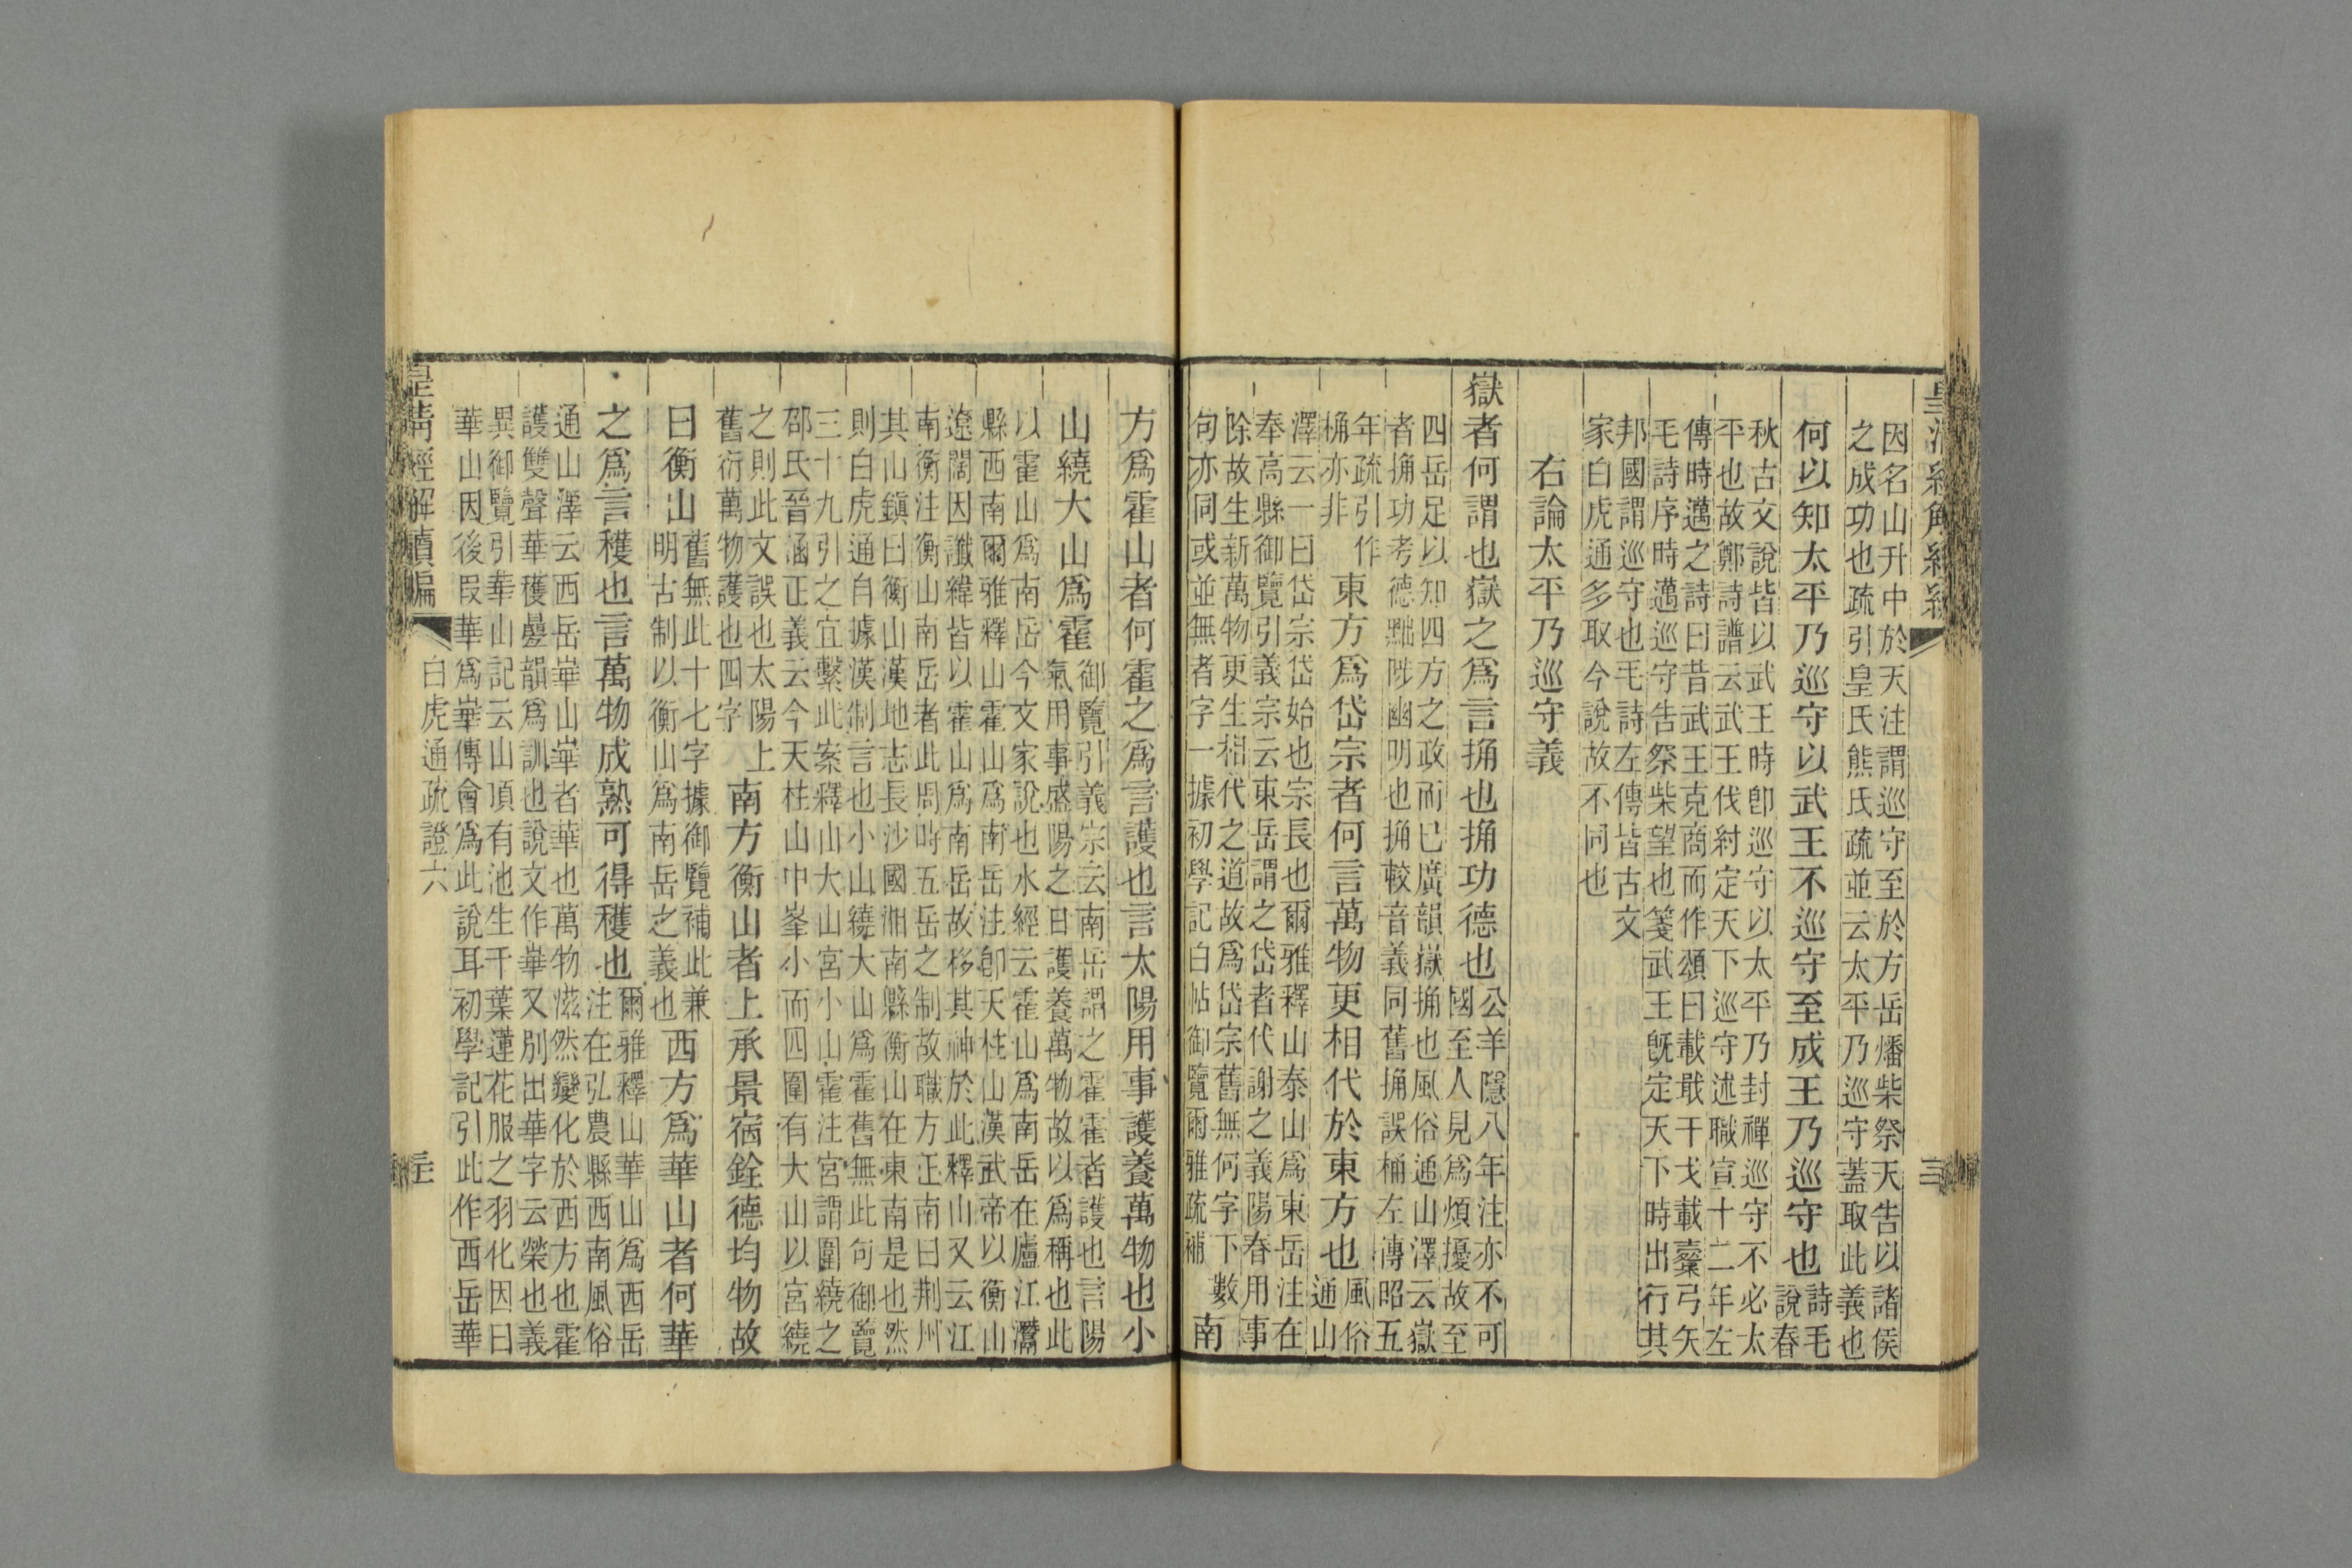 因名山升中於天注謂巡守至於方岳燔柴祭天告以諸侯
之成功也疏引皇氏熊氏疏並云太平乃巡守蓋取此義也
何以知太平乃巡守以武王不巡守至成王乃巡守也詩毛
說春
秋古文說皆以武王時卽巡守以太平乃封禪巡守不必太
平也故鄭詩譜云武王伐紂定天下巡守述職宣十二年左
傳時邁之詩曰昔武王克商而作頌曰載戢干戈載櫜弓矢
毛詩序時邁巡守告祭柴望也箋武王旣定天下時出行其
邦國謂巡守也毛詩左傳皆古文
家白虎通多取今說故不同也
右論太平乃巡守義
嶽者何謂也嶽之爲言捔也捔功德也公羊隱八年注亦不可
國至人見爲煩擾故至
四岳足以知四方之政而已廣韻嶽捔也風俗通山澤云嶽
者捔功考德黜陟幽明也捔較音義同舊捔誤桷左傳昭五
年疏引作
桷亦非
東方爲岱宗者何言萬物更相代於東方也風俗
通山
澤云一曰岱宗岱始也宗長也爾雅釋山泰山爲東岳注在
奉高縣御覽引義宗云東岳謂之岱者代謝之義陽春用事
除故生新萬物更生相代之道故爲岱宗舊無何字下數
句亦同或並無者字一據初學記白帖御覽爾雅疏補
南
方爲霍山者何霍之爲言護也言太陽用事護養萬物也小
山繞大山爲霍御覽引義宗云南岳謂之霍霍者護也言陽
氣用事盛陽之日護養萬物故以爲稱也此
以霍山爲南岳今文家說也水經云霍山爲南岳在廬江灊
縣西南爾雅釋山霍山爲南岳注卽天柱山漢武帝以衡山
遼闊因讖緯皆以霍山爲南岳故移其神於此釋山又云江
南衡注衡山南岳者此周時五岳之制故職方正南曰荆州
其山鎮曰衡山漢地志長沙國湘南縣衡山在東南是也然
則白虎通自據漢制言也小山繞大山爲霍舊無此句御覽
三十九引之宜繫此案釋山大山宮小山霍注宮謂圍繞之
邵氏晉涵正義云今天柱山中峯小而四圍有大山以宮繞
之則此文誤也太陽上
舊衍萬物護也四字
南方衡山者上承景宿銓德均物故
曰衡山舊無此十七字據御覽補此兼
明古制以衡山爲南岳之義也
西方爲華山者何華
之爲言穫也言萬物成熟可得穫也爾雅釋山華山爲西岳
注在弘農縣西南風俗
通山澤云西岳崋山崋者華也萬物滋然變化於西方也霍
護雙聲華穫疊韻爲訓也說文作崋又別出華字云榮也義
異御覽引華山記云山頂有池生千葉蓮花服之羽化因曰
華山因後叚華爲崋傳會爲此說耳初學記引此作西岳華
皇清經解續編
白虎通疏證六